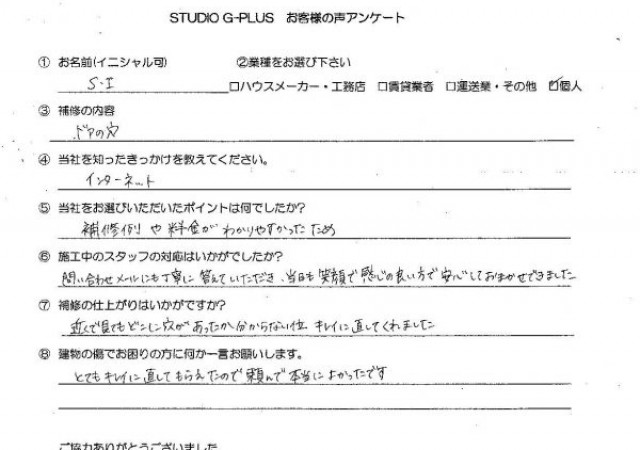 STUDIO G-PLUS お客様の声アンケート
① お名前(イニシャル可) ②業種をお選び下さい
S・I □ハウスメーカー・工務店 □賃貸業者 □運送業・その他 ☑個人
③ 補修の内容
ドアの穴
④ 当社を知ったきっかけを教えてください。
インターネット
⑤ 当社をお選びいただいたポイントは何でしたか?
補修例や料金がわかりやすかったため
⑥ 施工中のスタッフの対応はいかがでしたか?
問い合わせメールにも丁寧に答えていただき、当日も笑顔で感じの良い方で安心しておまかせできました
⑦ 補修の仕上がりはいかがですか?
近くで見てもどこに穴があったか分からない位キレイに直してくれました
⑧ 建物の傷でお困りの方に何か一言お願いします。
とてもキレイに直してもらえたので頼んで本当によかったです
ご協力ありがとうございました